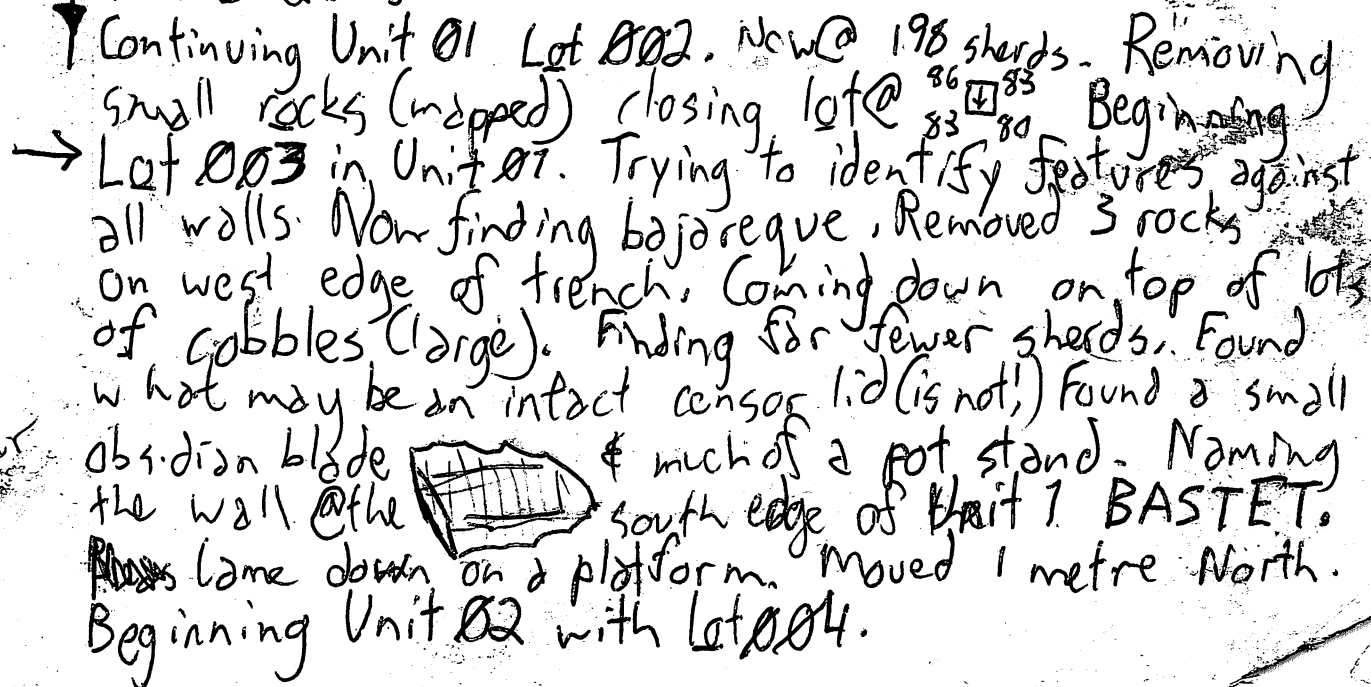 Continuing Unit 01 Lot 002. Now @ 198 sherds. Removing
small rocks (mapped) closing lot @ 86 83 83 80 Beginning
→ Lot 003 in Unit 01. Trying to identify features against
all walls. Now finding bajareque. Removed 3 rocks
on west edge of trench. Coming down on top of lots
of cobbles (large). Finding far fewer sherds. Found
what may be an intact censor lid (is not!) Found a small
obsidian blade & much of a pot stand. Naming
the wall @ the south edge of Unit 1 BASTET.
Came down on a platform. Moved 1 metre North.
Beginning Unit 02 with Lot 004.